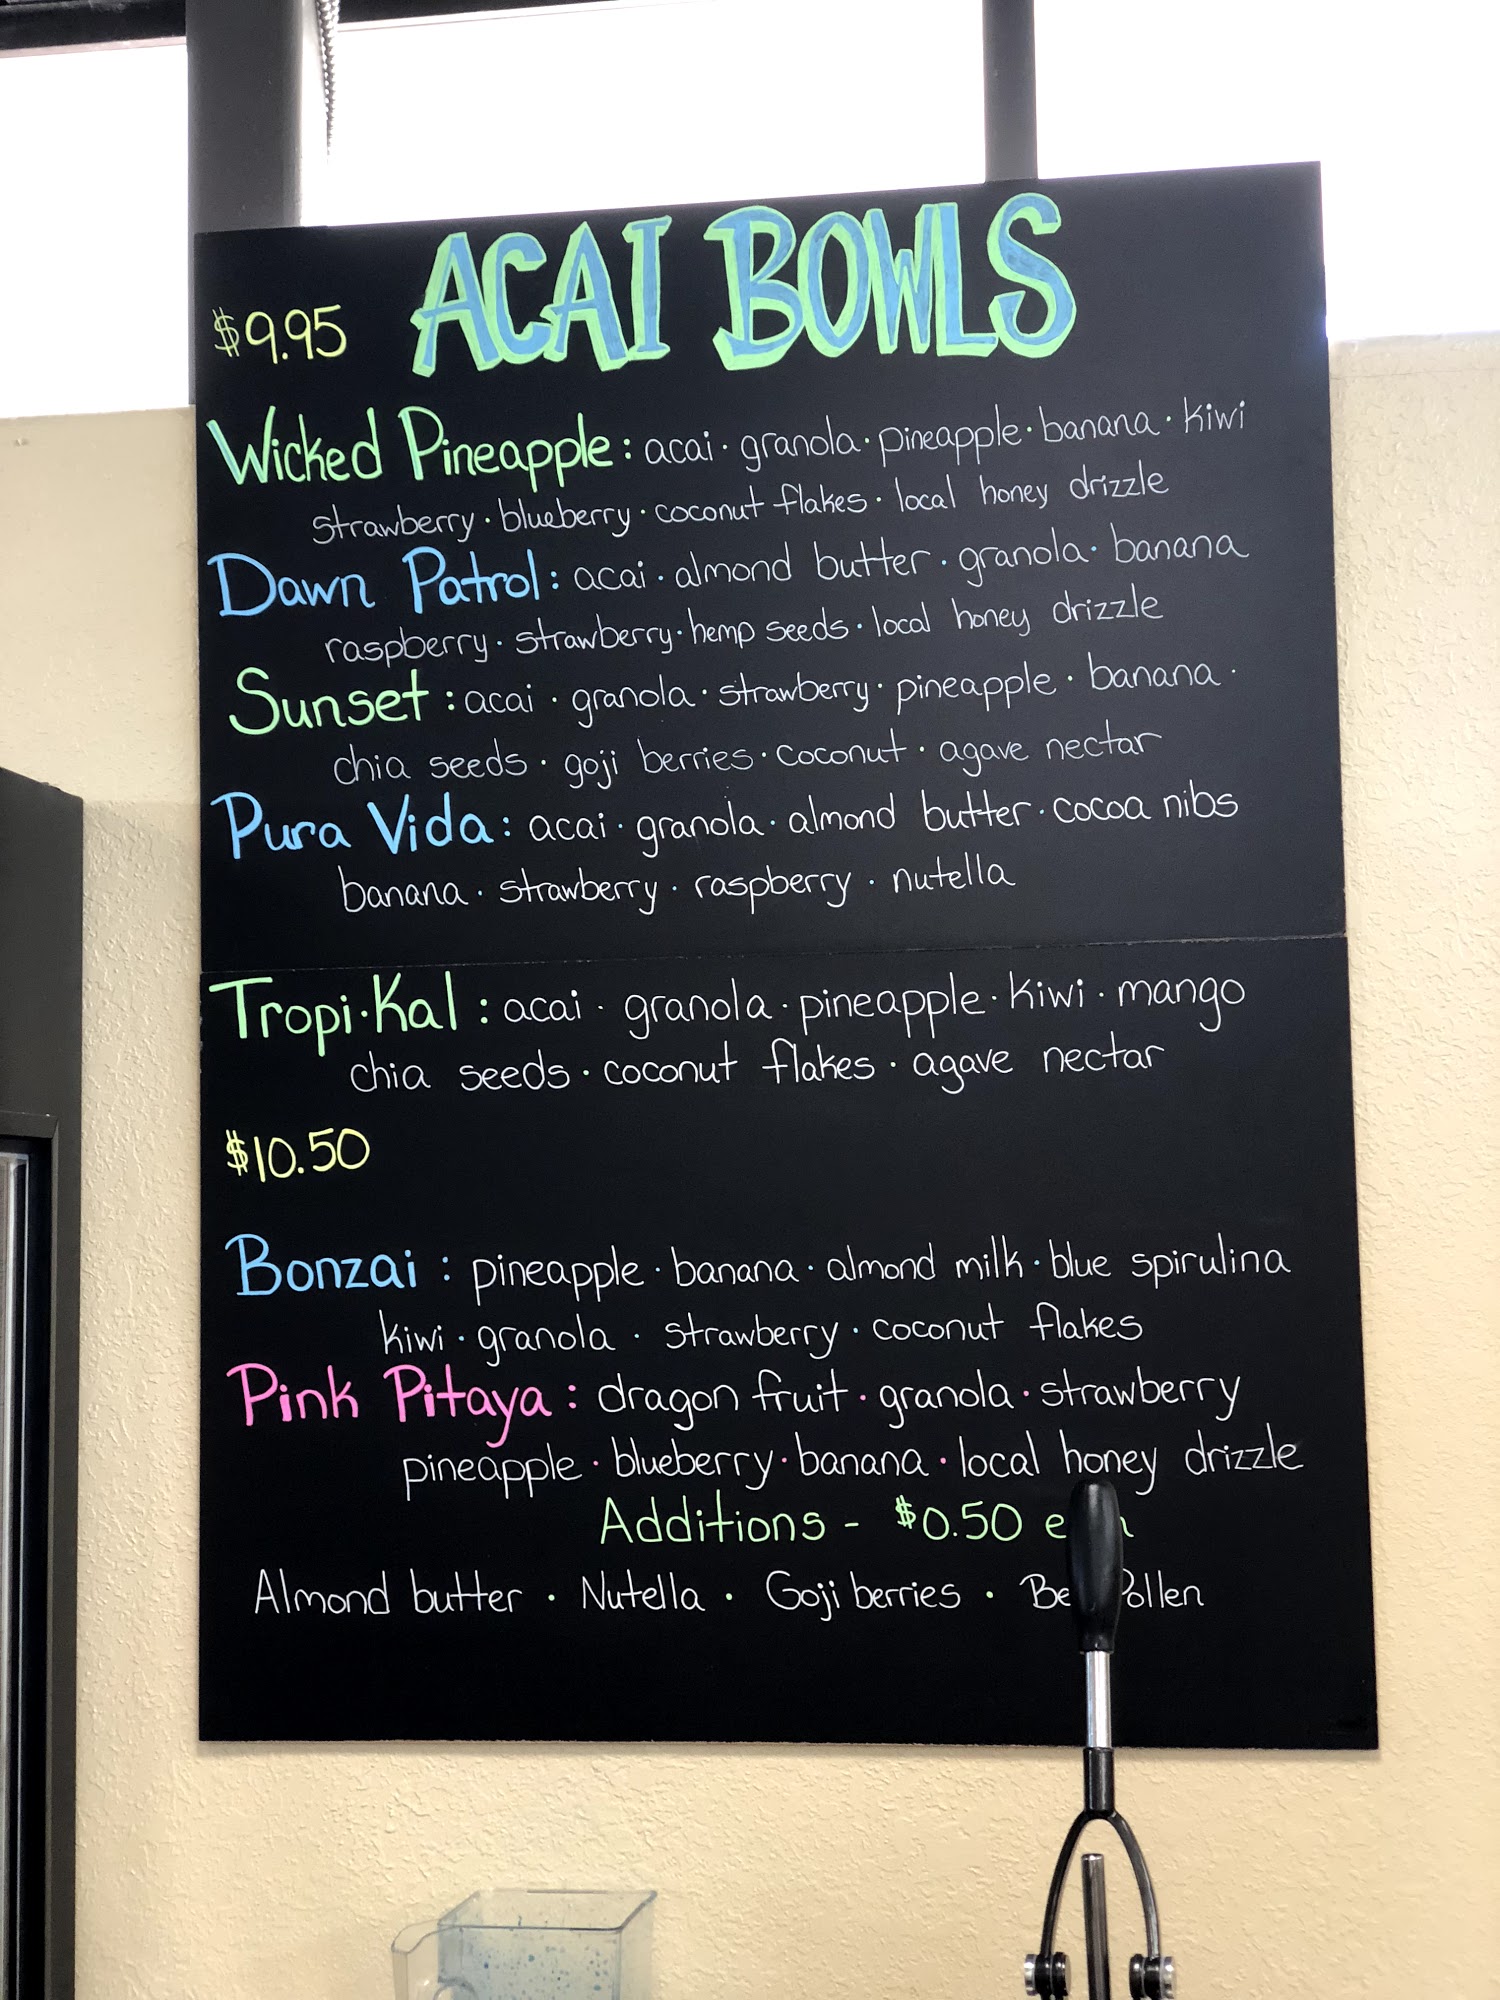 ACAI BOWLS
$9.95
Wicked Pineapple: acai · granola · pineapple · banana · kiwi
strawberry · blueberry · coconut flakes · local honey drizzle
Dawn Patrol: acai · almond butter · granola · banana
raspberry · strawberry · hemp seeds · local honey drizzle
Sunset: acai · granola · strawberry · pineapple · banana ·
chia seeds · goji berries · coconut · agave nectar
Pura Vida: acai · granola · almond butter · cocoa nibs
banana · strawberry · raspberry · nutella
Tropi·Kal: acai · granola · pineapple · kiwi · mango
chia seeds · coconut flakes · agave nectar
$10.50
Bonzai: pineapple · banana · almond milk · blue spirulina
kiwi · granola · strawberry · coconut flakes
Pink Pitaya: dragon fruit · granola · strawberry
pineapple · blueberry · banana · local honey drizzle
Additions - $0.50
Almond butter · Nutella · Goji berries · Bee Pollen